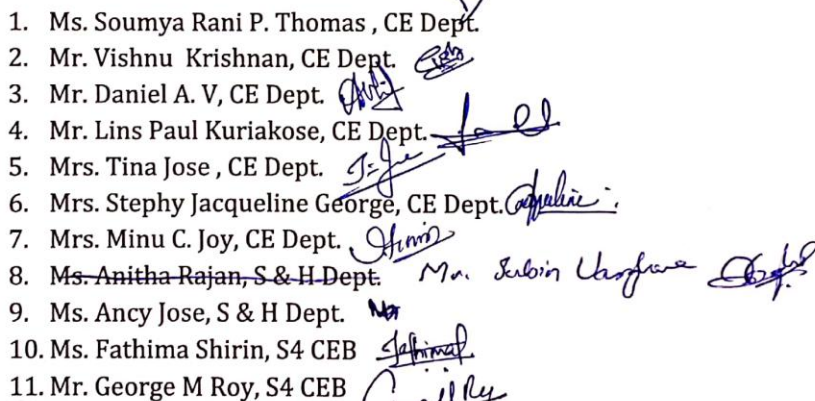 1. Ms. Soumya Rani P. Thomas , CE Dept.
2. Mr. Vishnu Krishnan, CE Dept.
3. Mr. Daniel A. V, CE Dept.
4. Mr. Lins Paul Kuriakose, CE Dept.
5. Mrs. Tina Jose , CE Dept.
6. Mrs. Stephy Jacqueline George, CE Dept. Jacqueline
7. Mrs. Minu C. Joy, CE Dept.
8. Ms. Anitha Rajan, S & H Dept. Mr.
9. Ms. Ancy Jose, S & H Dept.
10. Ms. Fathima Shirin, S4 CEB Fathima
11. Mr. George M Roy, S4 CEB